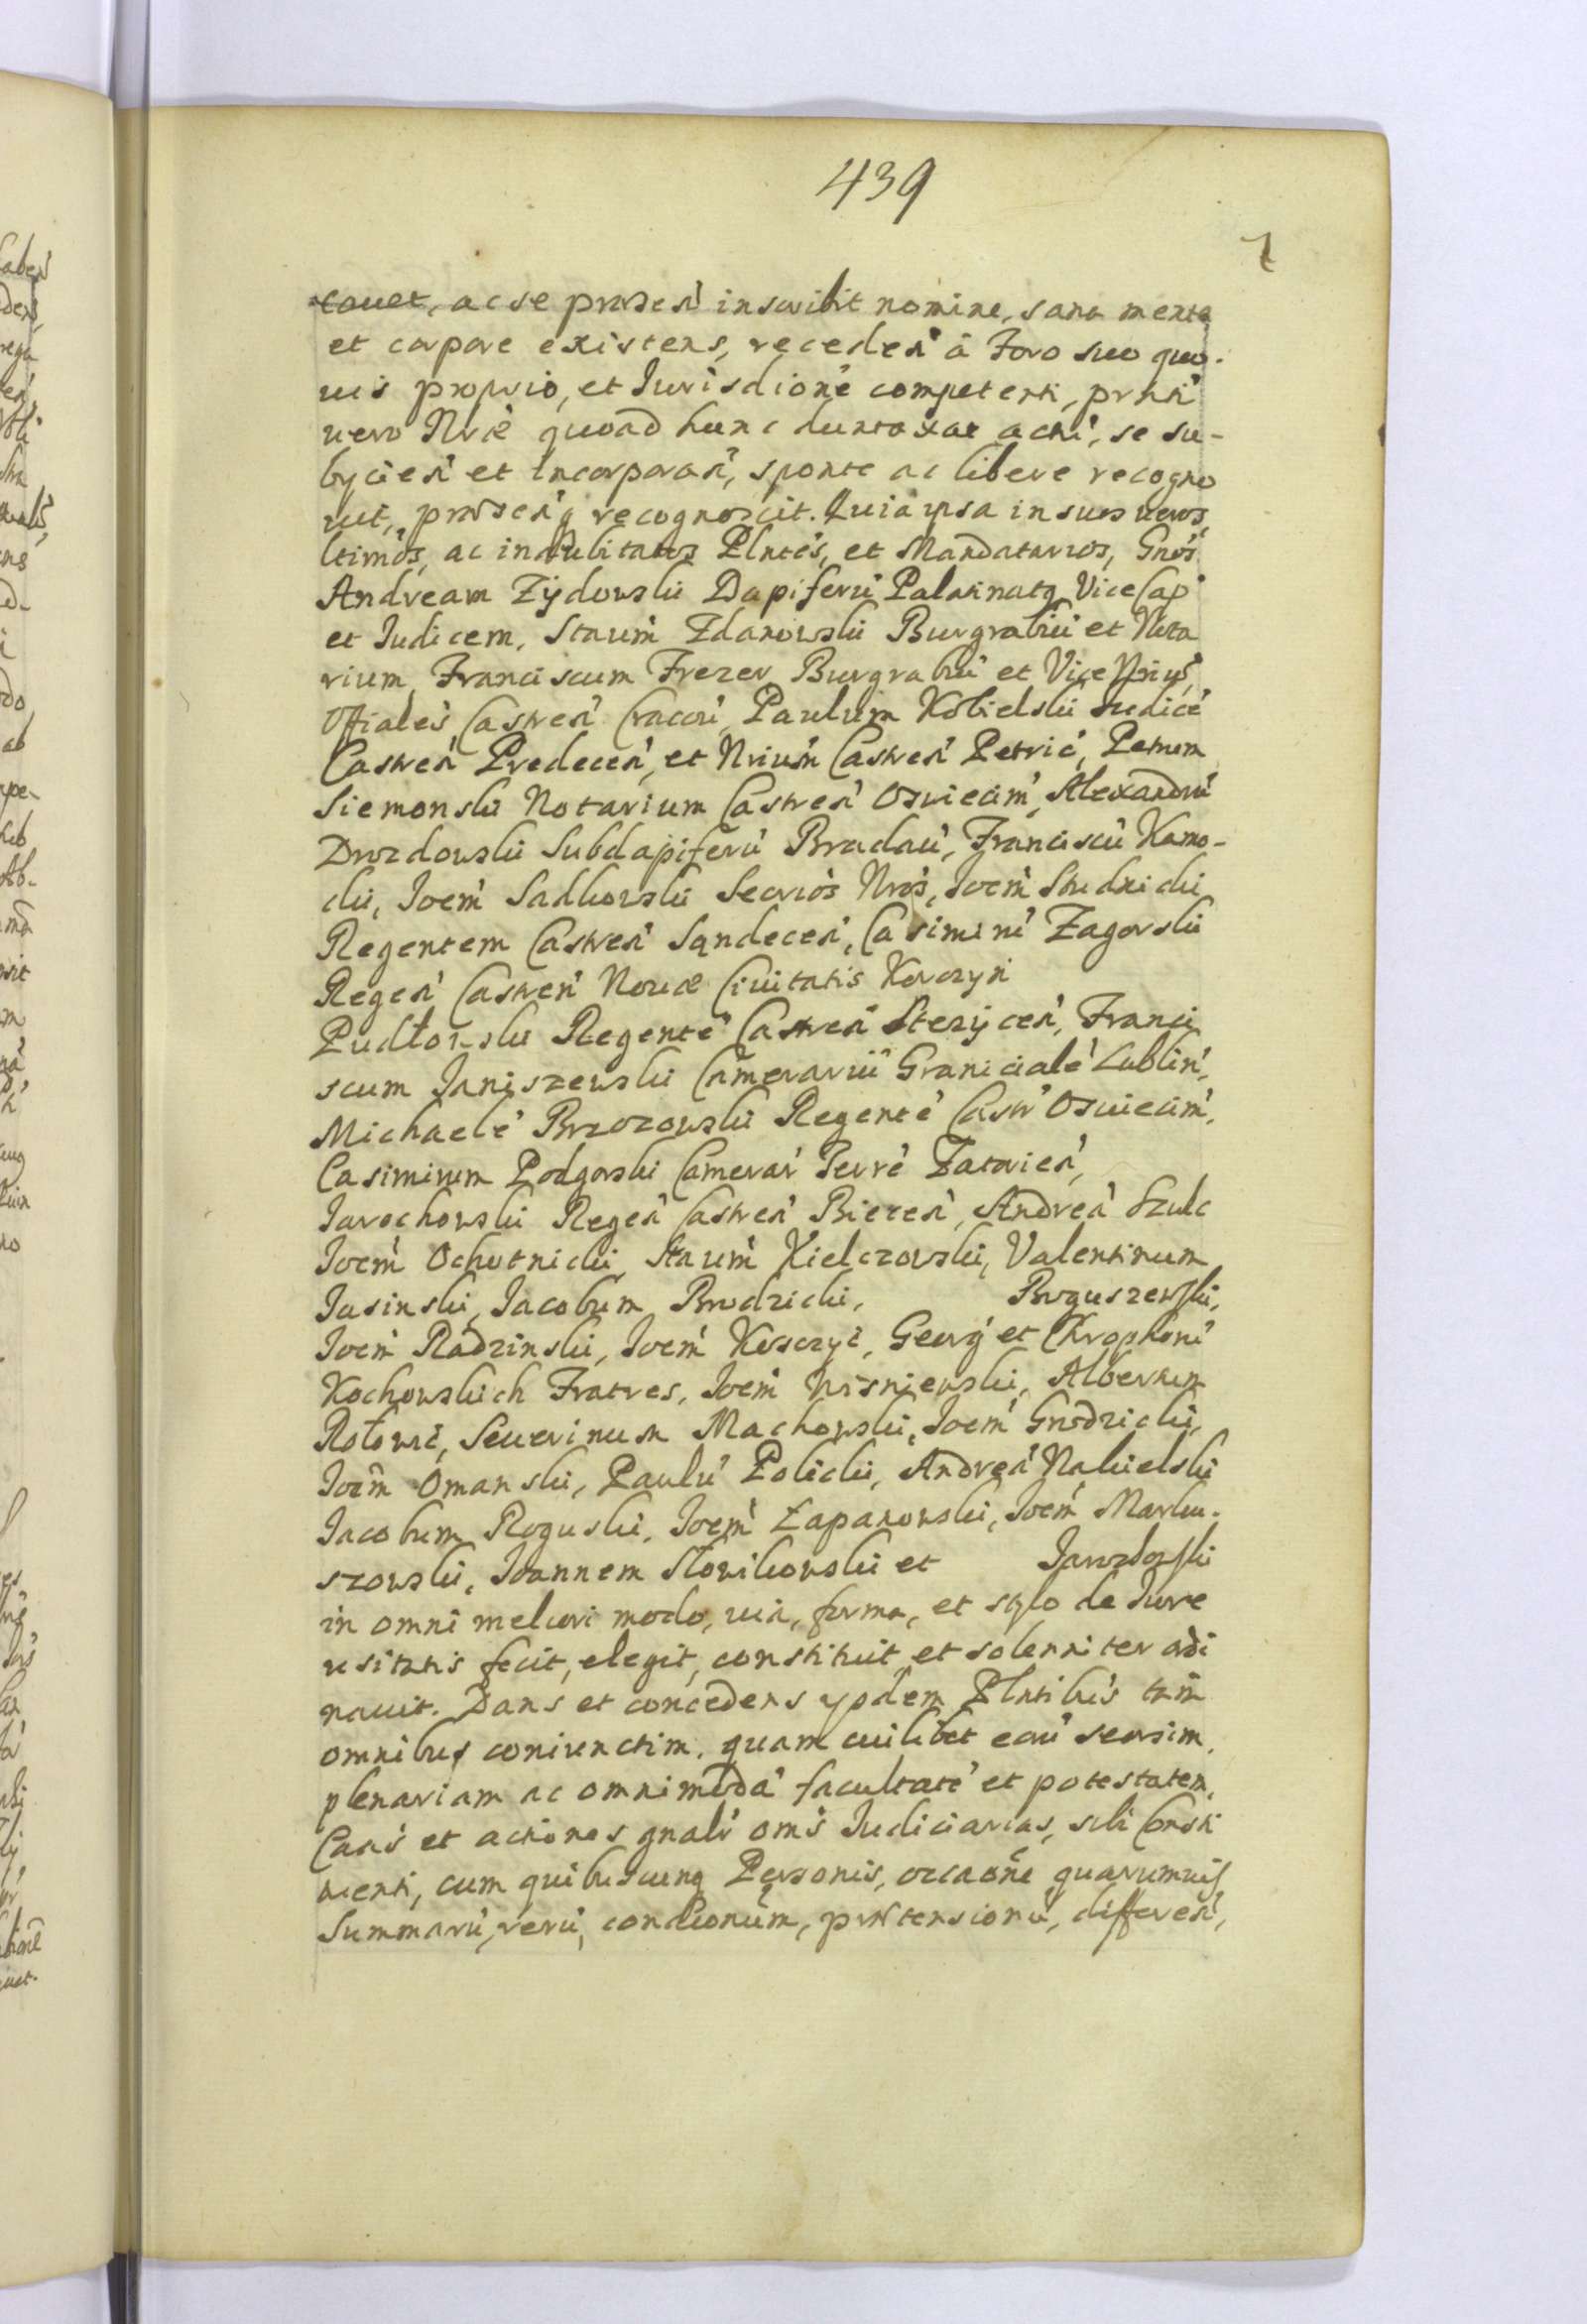 439
7
cauet, ac se praesen inscribit nomine, sana mente
et corpore existens, receden à Foro suo quo-
uis proprio, et Jurisdione competenti, prnti
uero Nrae quoad hunc duntaxat actu, se su-
bycien et incorporan, sponte ac libere recogno
uit, praesenq recognoscit. Quia ipsa in suos ueros,
ltimos, ac indubitatos Plntes, et Mandatarios, Gnos
Andream Zÿdowski Dapiferu Palatinatq Vice Cap
et Judicem, Staum Zdanowski Burgrabiu et Nota
rium, Franciscum Frezer Burgrabiu et Vice Nrium
Offiales Castren Cracou, Paulum Kobielski Judice
Castren Predecen, et Nrium Castren Petric, Petrum
Siemonski Notarium Castren Oswiecim, Alexandru
Drozdowski Subdapiferu Braclau, Franciscu Kamo-
cki, Joem Sadkowski Secrios Nros, Joem Studnicki
Regentem Castren Sandecen, Casimiru Zagorski
Regen Castren Nouae Ciuitatis Korczyn
Pudłowski Regente Castren Stezÿcen, Franci
scum Janiszewski Camerariu Graniciale Lublin,
Michaele Brzozowski Regente Castr Oswiecim,
Casimirum Podgorski Camerar Terre Zatorien,
Jarochowski Regen Castren Biecen, Andrea Szulc
Joem Ochotnicki, Staum Kielczowski, Valentinum
Jasinski, Jacobum Brodzicki, Boguszewski,
Joem Radzinski, Joem Kosczyc, Georg et Chrophoru
Kochowskich Fratres, Joem Wisniewski, Albertum
Rołowic, Seuerinum Machowski, Joem Grodzicki,
Joem Omanski, Paulu Policki, Andrea Nakielski
Jacobum Roguski, Joem Łapanowski, Joem Marku-
szowski, Joannem Słowikowski et Jawrłowski
in omni meliori modo, uia, forma, et stylo de Jure
usitatis fecit, elegit, constituit et solenniter ordi
nauit. Dans et concedens ypdem Plntibus tam
omnibus coniunctim, quam cuilibet eoru seorsim,
plenariam ac omnimoda facultate et potestatem,
Caas et actiones gnalr oms Judiciarias, sibi Consti
tuenti, cum quibuscunq Personis, occaone quarumuis
Summaru, reru, condionum, prætensionu, differen,